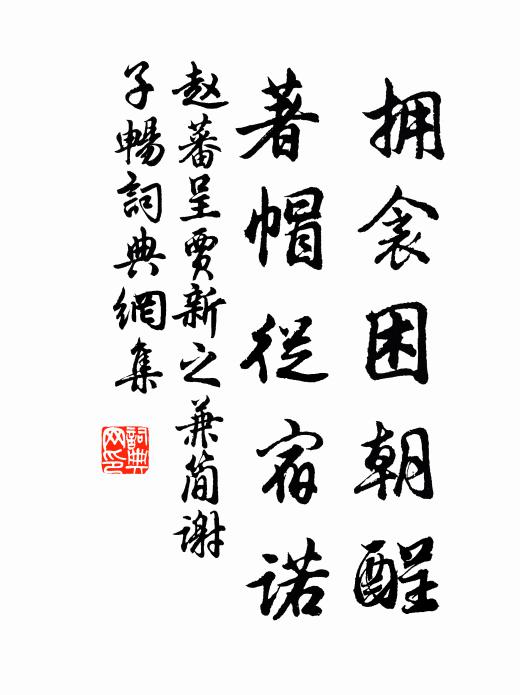 拥衾困朝酲
著帽從宿诺
赵蕃呈贾新之兼简谢
子暢詞典網集
詞典
网印